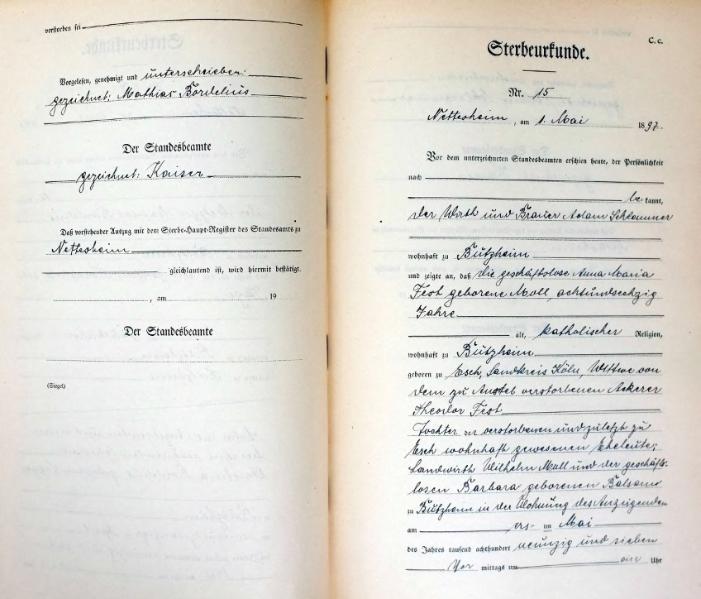 verstorben sei
Vorgelesen, genehmigt und unterschrieben:
gezeichnet: Mathias Bordelius
Der Standesbeamte
gezeichnet: Kaiser
Daß vorstehender Auszug mit dem Sterbe-Haupt-Register des Standesamts zu
Nettesheim
gleichlautend ist, wird hiermit bestätigt.
, am 19
Der Standesbeamte
(Siegel)
C. c.
Sterbeurkunde.
Nr. 15
Nettesheim, am 1. Mai 1897.
Vor dem unterzeichneten Standesbeamten erschien heute, der Persönlichkeit
nach
be kannt,
der Wirth und Brauer Adam Schlömmer
wohnhaft zu Butzheim
und zeigte an, daß die geschäftslose Anna Maria
Fest geborene Moll, achtundsechzig
Jahre
alt, katholischer Religion,
wohnhaft zu Butzheim
geboren zu Esch, Landkreis Köln, Wittwe von
dem zu Anstel verstorbenen Ackerer
Theodor Fest
Tochter der verstorbenen und zuletzt zu
Esch wohnhaft gewesenen Eheleute,
Landwirth Wilhelm Moll und der geschäfts-
losen Barbara geborenen Balsam
zu Butzheim in der Wohnung des Anzeigenden
am ers- im Mai
des Jahres tausend achthundert neunzig und sieben
Vor mittags um ein Uhr